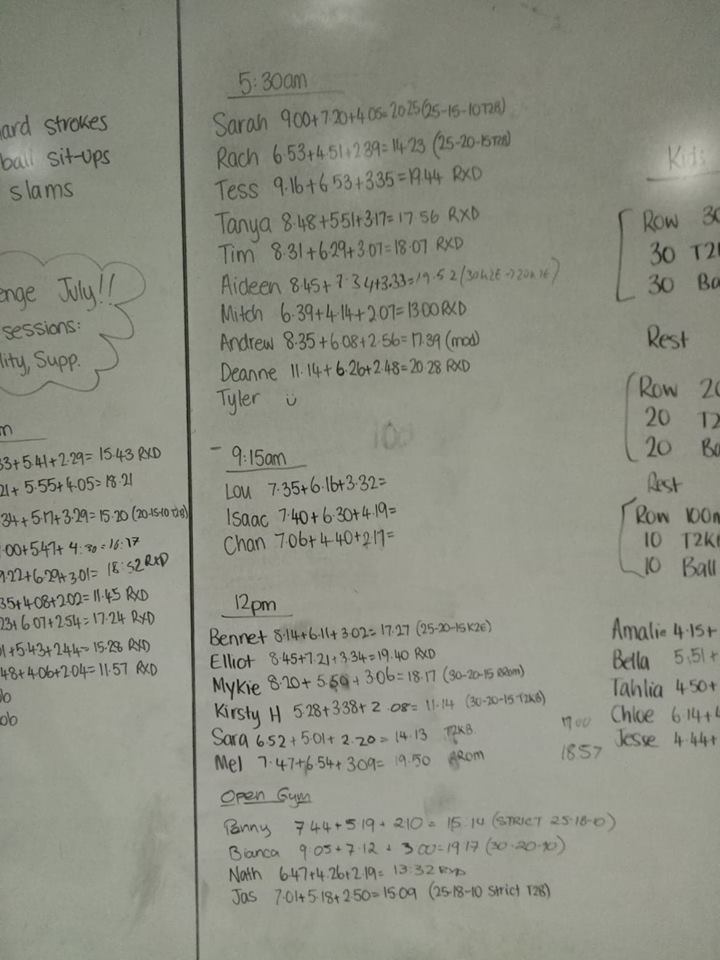 ard strokes
ball sit-ups
slams
enge July!!
sessions:
lity, Supp.
m
33+5.41+2.29=15.43 RXD
21+5.55+4.05=18.21
34+5.17+3.29=15.20 (20-15-10 T2B)
.00+5.47+4:30=16:17
9.22+6.29+3.01= 18:52 RXD
35+4.08+2.02=11.45 RXD
23+6.07+2.54=17.24 RXD
1+5.43+2.44=15.28 RXD
48+4.06+2.04=11.57 RXD
ob
5:30am
Sarah 9.00+7.20+4.05=20.25 (25-15-10 T2B)
Rach 6.53+4.51+2.39=14.23 (25-20-15 T2B)
Tess 9.16+6.53+3.35=19.44 RXD
Tanya 8.48+5.51+3.17=17.56 RXD
Tim 8.31+6.29+3.07=18.07 RXD
Aideen 8.45+7.34+3.33=19.52 (30K2E→20K2E)
Mitch 6.39+4.14+2.07=13.00 RXD
Andrew 8.35+6.08+2.56=17.39 (mod)
Deanne 11.14+6.26+2.48=20.28 RXD
Tyler
100
- 9:15am
Lou 7.35+6.16+3.32=
Isaac 7.40+6.30+4.19=
Chan 7.06+4.40+2.17=
12pm
Bennet 8.14+6.11+3.02=17.27 (25-20-15 K2E)
Elliot 8.45+7.21+3.34=19.40 RXD
Mykie 8.20+5.50+3.06=18.17 (30-20-15
Kirsty H 5.28+3.38+2.08=11.14 (30-20-15 T2KB)
Sara 6.52+5.01+2.20=14.13 T2KB
Mel 7.47+6.54+3.09=19.50
1857
Open Gym
Panny 7.44+5.19+2.10=15.14 (STRICT 25-18-0)
Bianca 9.05+7.12+3.00=19.17 (30-20-10)
Nath 6.47+4.26+2.19=13.32 RXD
Jas 7.01+5.18+2.50=15.09 (25-18-10 Strict T2B)
Kids
Row 30
30 T2
30 Ba
Rest
Row 20
20 T2
20 Ba
Rest
Row 100m
10 T2K
10 Ball
Amalie 4.15+
Bella 5.51+
Tahlia 4.50+
Chloe 6.14+4
Jesse 4.44+